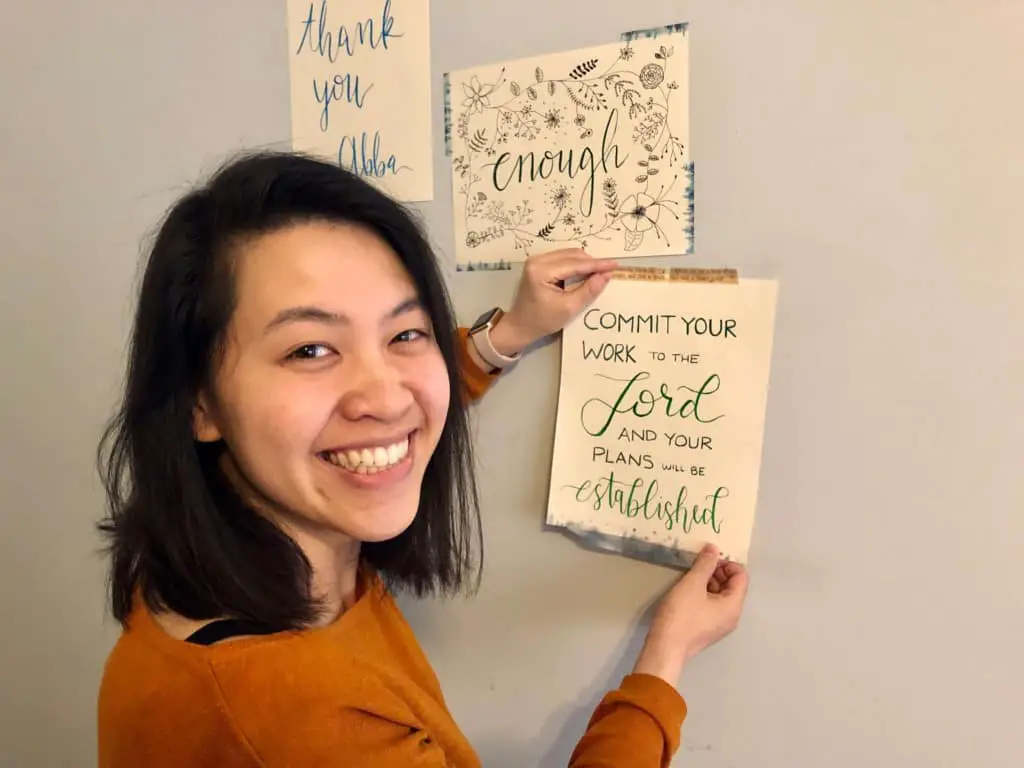 thank
you
Abba
enough
COMMIT YOUR
WORK TO THE
Lord
AND YOUR
PLANS WILL BE
established